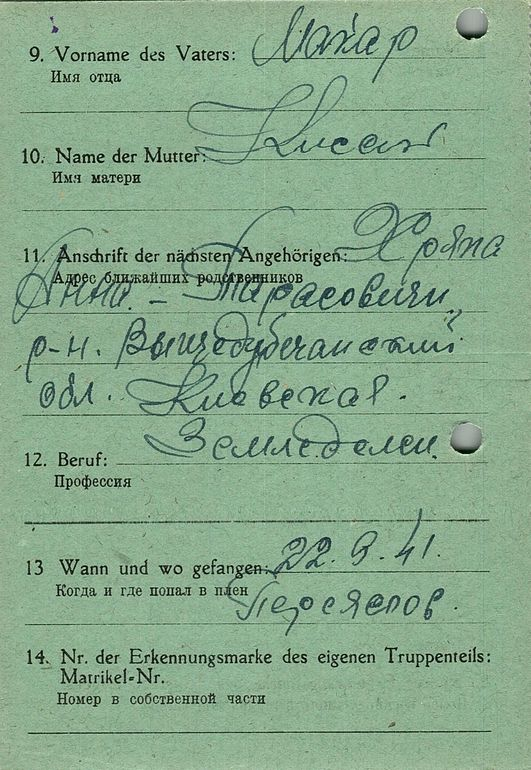 9. Vorname des Vaters: Макар
Имя отца
10. Name der Mutter:
Имя матери
11. Anschrift der nächsten Angehörigen: Хряпа
Адрес ближайших родственников
Анна - Тарасовичи,
р-н. Вышедубечанский
обл. Киевская.
12. Beruf: Земледелец
Профессия
13 Wann und wo gefangen: 22.9.41.
Когда и где попал в плен Переяслов.
14. Nr. der Erkennungsmarke des eigenen Truppenteils:
Matrikel-Nr.
Номер в собственной части